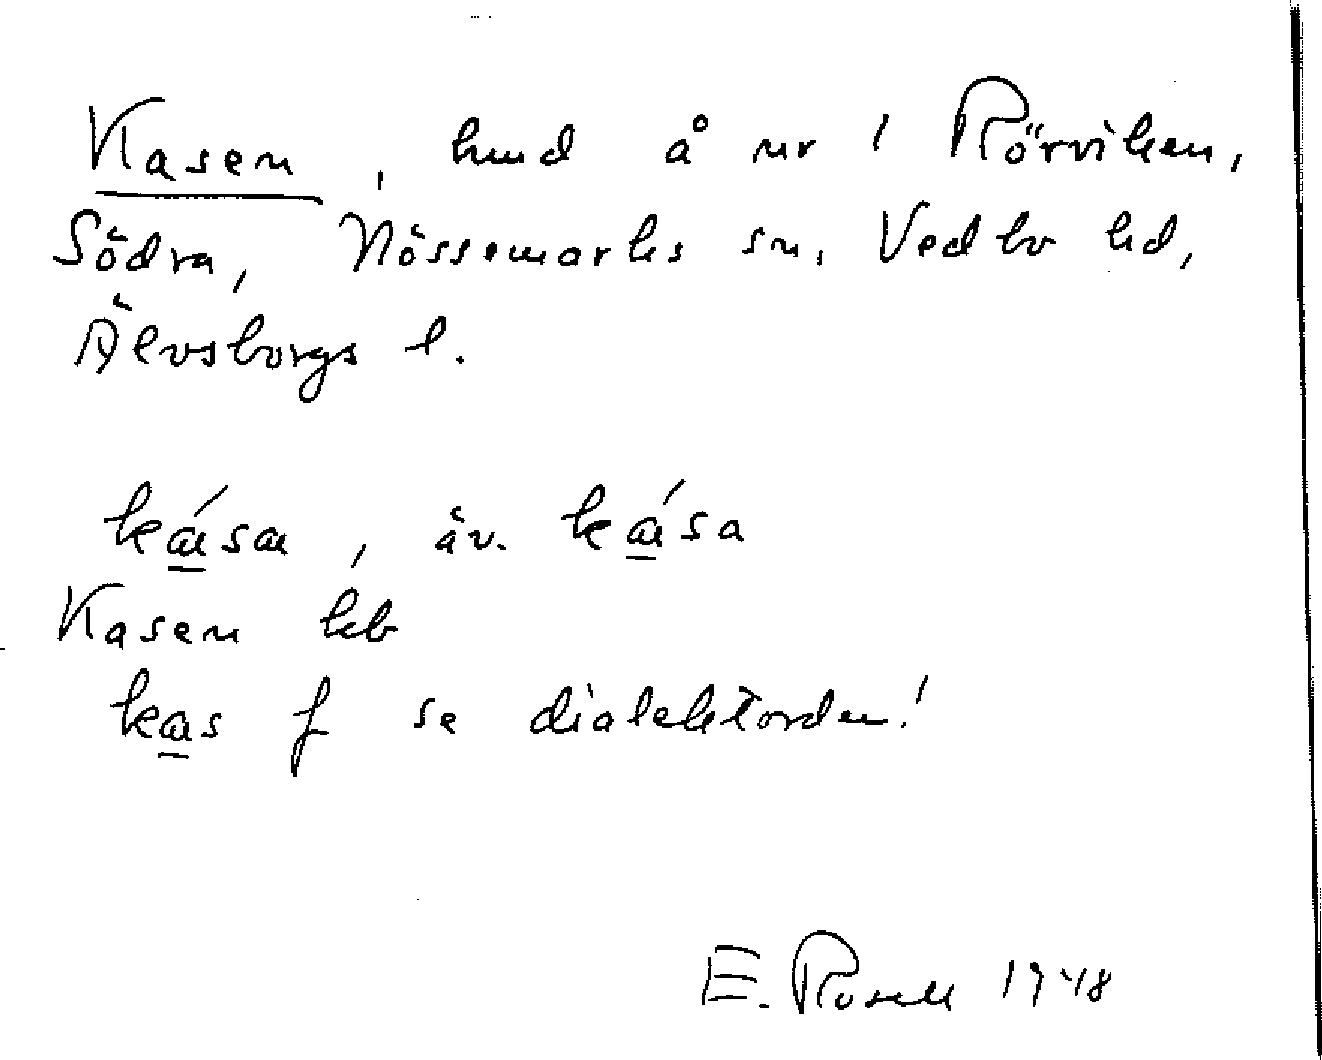 Kasen, hmd å nr 1 Rörviken,
Södra, Nössemarks sn, Vedbo hd,
Älvsborgs l.
kǽsæ, äv. kǽsa
Kasen kb
kæs f se dialektorden!
E. Rosell 1948